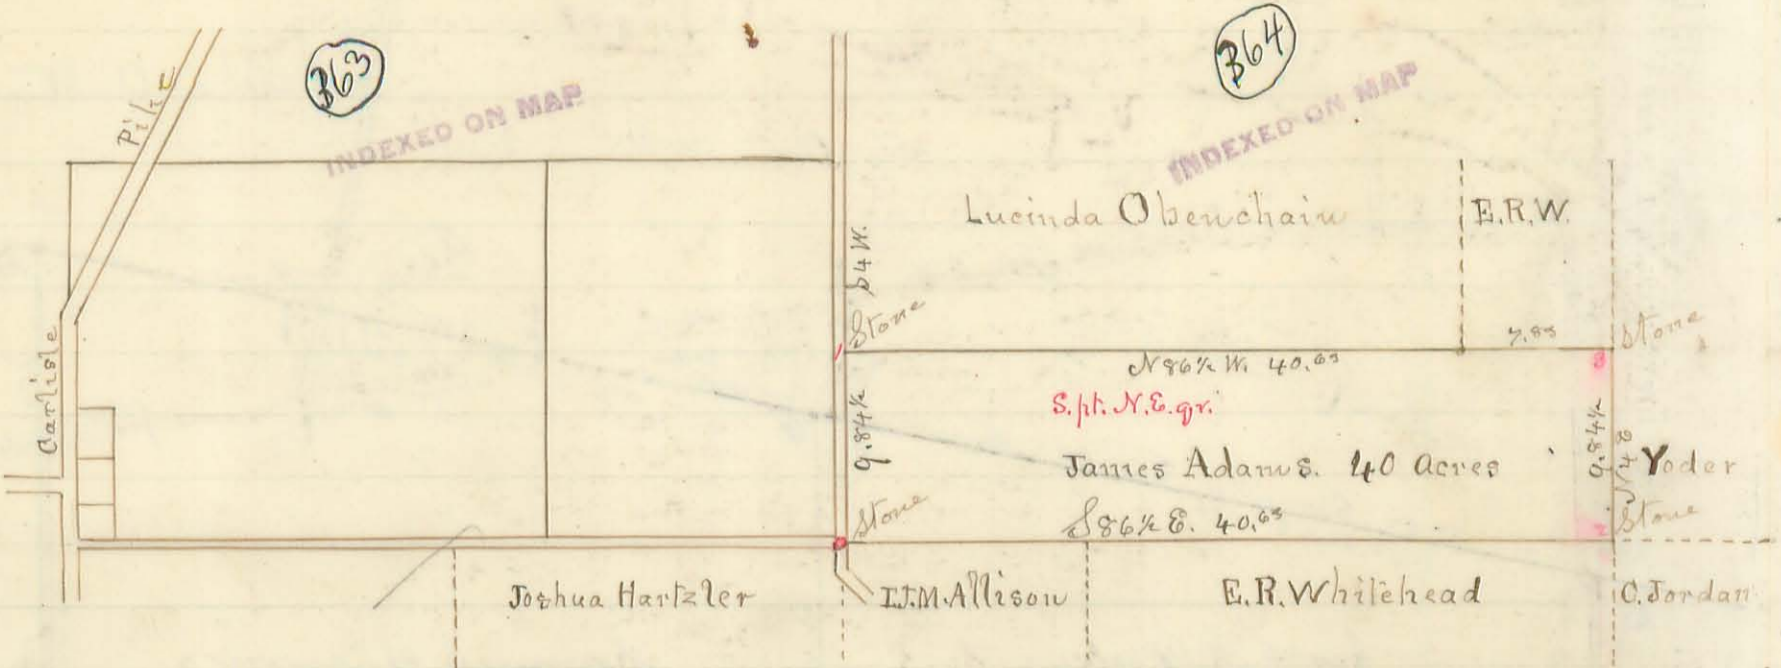 B63
B64
INDEXED ON MAP
INDEXED ON MAP
Pike
Carlisle
Lucinda Obenchain
E.R.W.
S4W.
Stone
7.83
Stone
N86½ W. 40.63
3
S.pt. N.E.qr.
9.84½
James Adams. 40 Acres
9.84½
N4E
Yoder
Stone
S86½ E. 40.63
2
Stone
Joshua Hartzler
I.J.M.Allison
E.R.Whitehead
C.Jordan